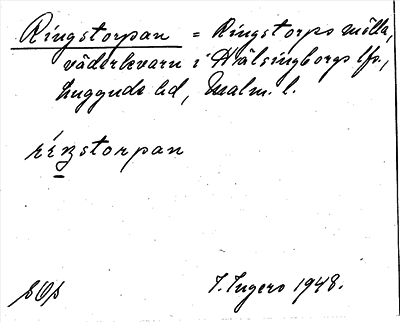 Ringstorpan = Ringstorps mölla,
väderkvarn i Hälsingborgs lfs.,
Luggude hd, Malm. l.
ríŋstorpan
SOp
I. Ingers 1948.